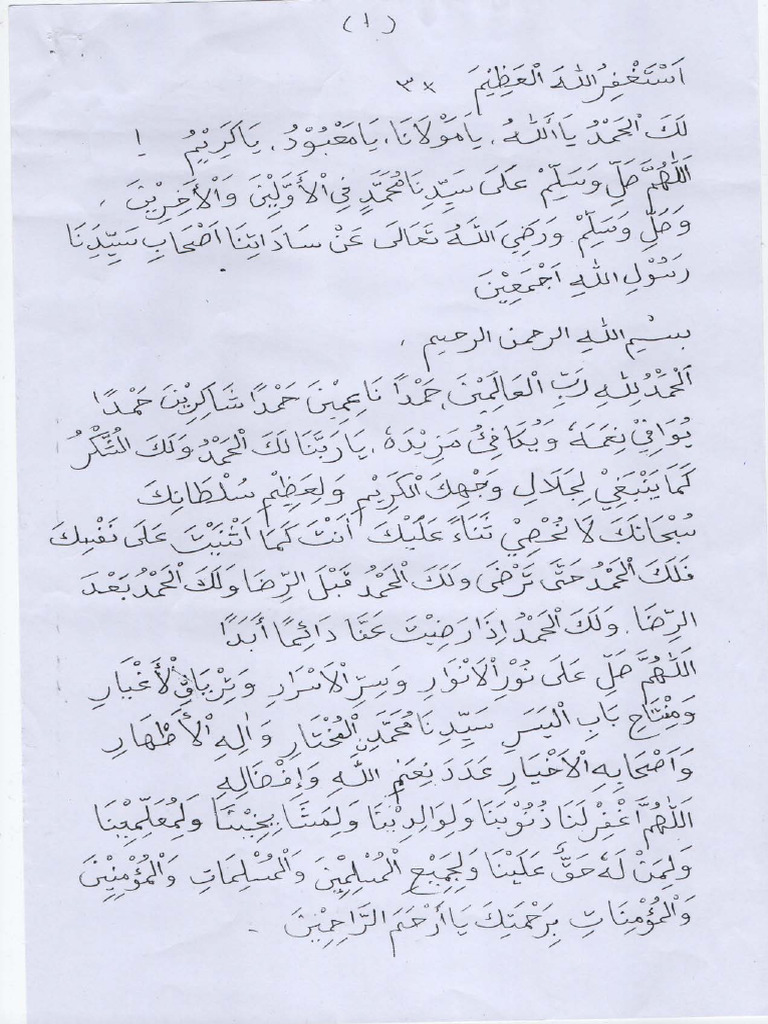 (١)
اَسْتَغْفِرُ اللهَ الْعَظِيْمَ ٣×
لَكَ الْحَمْدُ يَا أَللهُ، يَا مَوْلَانَا، يَا مَعْبُوْدُ، يَا كَرِيْمُ !
اَللّٰهُمَّ صَلِّ وَسَلِّمْ عَلَى سَيِّدِنَا مُحَمَّدٍ فِي الْأَوَّلِيْنَ وَالْأَخِرِيْنَ،
وَصَلِّ وَسَلِّمْ وَرَضِيَ اللهُ تَعَالَى عَنْ سَادَاتِنَا اَصْحَابِ سَيِّدِنَا
رَسُوْلِ اللهِ اَجْمَعِيْنَ
بِسْمِ اللهِ الرحمن الرحيم ،
اَلْحَمْدُ لِلّٰهِ رَبِّ الْعَالَمِيْنَ، حَمْدًا نَاعِمِيْنَ حَمْدًا شَاكِرِيْنَ حَمْدًا
يُوَافِيْ نِعَمَهُ وَيُكَافِئُ مَزِيْدَهُ، يَا رَبَّنَا لَكَ الْحَمْدُ وَلَكَ الشُّكْرُ
كَمَا يَنْبَغِيْ لِجَلَالِ وَجْهِكَ الْكَرِيْمِ وَلِعَظِيْمِ سُلْطَانِكَ
سُبْحَانَكَ لَا نُحْصِيْ ثَنَاءً عَلَيْكَ اَنْتَ كَمَا اَثْنَيْتَ عَلَى نَفْسِكَ
فَلَكَ الْحَمْدُ حَتَّى تَرْضَى وَلَكَ الْحَمْدُ قَبْلَ الرِّضَا وَلَكَ الْحَمْدُ بَعْدَ
الرِّضَا، وَلَكَ الْحَمْدُ اِذَا رَضِيْتَ عَنَّا دَائِمًا أَبَدًا
اَللّٰهُمَّ صَلِّ عَلَى نُوْرِ الْاَنْوَارِ وَسِرِّ الْاَسْرَارِ وَتِرْيَاقِ الْأَغْيَارِ
وَمِفْتَاحِ بَابِ الْيَسَرِ سَيِّدِنَا مُحَمَّدٍ الْمُخْتَارِ وَاٰلِهِ الْأَطْهَارِ
وَاَصْحَابِهِ الْاَخْيَارِ عَدَدَ نِعَمِ اللهِ وَاِفْضَالِهِ
اَللّٰهُمَّ اغْفِرْ لَنَا ذُنُوْبَنَا وَلِوَالِدِيْنَا وَلِمَشَايِخِيْنَا وَلِمُعَلِّمِيْنَا
وَلِمَنْ لَهُ حَقٌّ عَلَيْنَا وَلِجَمِيْعِ الْمُسْلِمِيْنَ وَالْمُسْلِمَاتِ وَالْمُؤْمِنِيْنَ
وَالْمُؤْمِنَاتِ بِرَحْمَتِكَ يَا أَرْحَمَ الرَّاحِمِيْنَ .